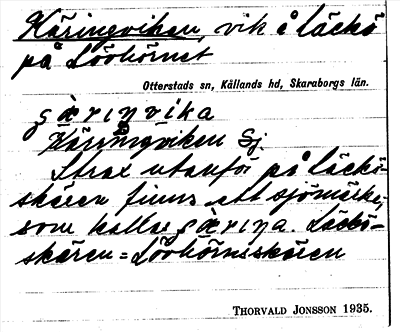 Käringviken, vik å Läckö
på Lövhörnet
Otterstads sn, Kållands hd, Skaraborgs län.
Käringviken Sj.
Strax utanför på Läckö-
skären finns ett sjömärke,
som kallas Läckö-
skären = Lövhörnsskären
THORVALD JONSSON 1935.